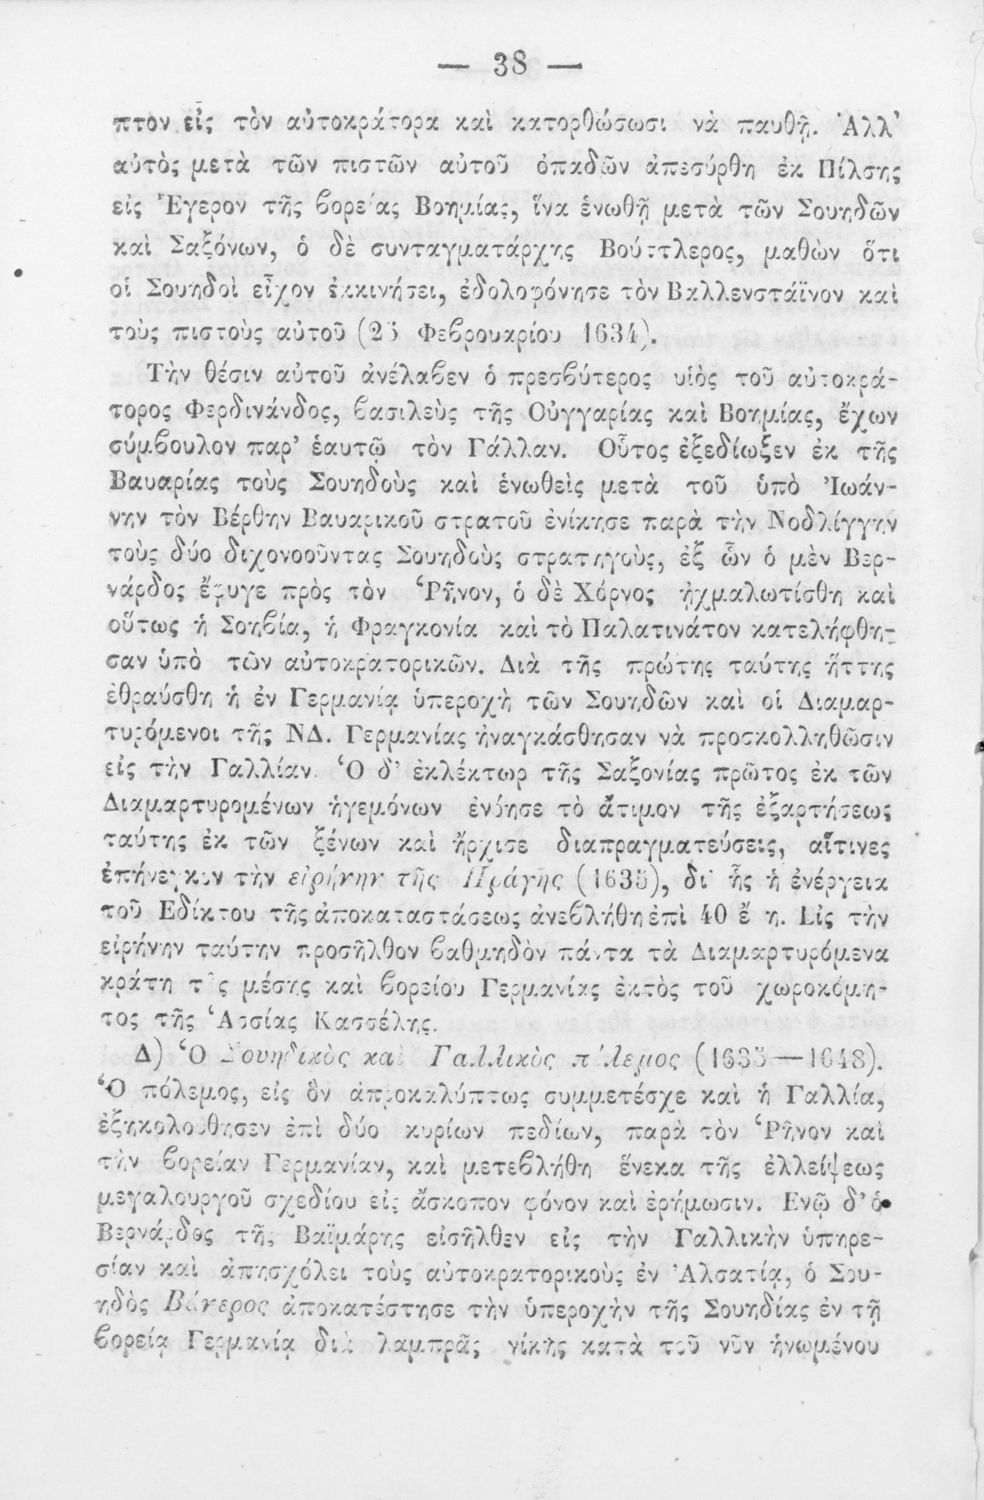 — 38 —
πτον εἰς τὸν αὐτοκράτορα καὶ κατορθώσωσι νὰ παυθῇ. Ἀλλ’
αὐτὸς μετὰ τῶν πιστῶν αὐτοῦ ὀπαδῶν ἀπεσύρθη ἐκ Πίλσης
εἰς Ἔγερον τῆς βορείας Βοημίας, ἵνα ἑνωθῇ μετὰ τῶν Σουηδῶν
καὶ Σαξόνων, ὁ δὲ συνταγματάρχης Βούττλερος, μαθὼν ὅτι
οἱ Σουηδοὶ εἶχον ἐκκινήσει, ἐδολοφόνησε τὸν Βαλλενστάϊνον καὶ
τοὺς πιστοὺς αὐτοῦ (25 Φεβρουαρίου 1634).
Τὴν θέσιν αὐτοῦ ἀνέλαβεν ὁ πρεσβύτερος υἱὸς τοῦ αὐτοκρά-
τορος Φερδινάνδος, βασιλεὺς τῆς Οὐγγαρίας καὶ Βοημίας, ἔχων
σύμβουλον παρ’ ἑαυτῷ τὸν Γάλλαν. Οὗτος ἐξεδίωξεν ἐκ τῆς
Βαυαρίας τοὺς Σουηδοὺς καὶ ἑνωθεὶς μετὰ τοῦ ὑπὸ Ἰωάν-
νην τὸν Βέρθην Βαυαρικοῦ στρατοῦ ἐνίκησε παρὰ τὴν Νοδλίγγην
τοὺς δύο διχονοοῦντας Σουηδοὺς στρατηγοὺς, ἐξ ὧν ὁ μὲν Βερ-
νάρδος ἔφυγε πρὸς τὸν Ῥῆνον, ὁ δὲ Χόρνος ᾐχμαλωτίσθη καὶ
οὕτως ἡ Σουηβία, ἡ Φραγκονία καὶ τὸ Παλατινάτον κατελήφθη-
σαν ὑπὸ τῶν αὐτοκρατορικῶν. Διὰ τῆς πρώτης ταύτης ἥττης
ἐθραύσθη ἡ ἐν Γερμανίᾳ ὑπεροχὴ τῶν Σουηδῶν καὶ οἱ Διαμαρ-
τυρόμενοι τῆς ΝΔ. Γερμανίας ἠναγκάσθησαν νὰ προσκολληθῶσιν
εἰς τὴν Γαλλίαν. Ὁ δ’ ἐκλέκτωρ τῆς Σαξονίας πρῶτος ἐκ τῶν
Διαμαρτυρομένων ἡγεμόνων ἐνόησε τὸ ἄτιμον τῆς ἐξαρτήσεως
ταύτης ἐκ τῶν ξένων καὶ ἤρχισε διαπραγματεύσεις, αἵτινες
ἐπήνεγκον τὴν εἰρήνην τῆς Πράγης (1635), δι’ ἧς ἡ ἐνέργεια
τοῦ Ἐδίκτου τῆς ἀποκαταστάσεως ἀνεβλήθη ἐπὶ 40 ἔτη. Εἰς τὴν
εἰρήνην ταύτην προσῆλθον βαθμηδὸν πάντα τὰ Διαμαρτυρόμενα
κράτη τῆς μέσης καὶ βορείου Γερμανίας ἐκτὸς τοῦ χωροκόμη-
τος τῆς Ἁσσίας Κασσέλης.
Δ) Ὁ Σουηδικὸς καὶ Γαλλικὸς πόλεμος (1635—1648).
Ὁ πόλεμος, εἰς ὃν ἀπροκαλύπτως συμμετέσχε καὶ ἡ Γαλλία,
ἐξηκολούθησεν ἐπὶ δύο κυρίων πεδίων, παρὰ τὸν Ῥῆνον καὶ
τὴν βορείαν Γερμανίαν, καὶ μετεβλήθη ἕνεκα τῆς ἐλλείψεως
μεγαλουργοῦ σχεδίου εἰς ἄσκοπον φόνον καὶ ἐρήμωσιν. Ἐνῷ δ’ ὁ
Βερνάρδος τῆς Βαϊμάρης εἰσῆλθεν εἰς τὴν Γαλλικὴν ὑπηρε-
σίαν καὶ ἀπησχόλει τοὺς αὐτοκρατορικοὺς ἐν Ἀλσατίᾳ, ὁ Σου-
ηδὸς Βάνερος ἀποκατέστησε τὴν ὑπεροχὴν τῆς Σουηδίας ἐν τῇ
βορείᾳ Γερμανίᾳ διὰ λαμπρᾶς νίκης κατὰ τοῦ νῦν ἡνωμένου